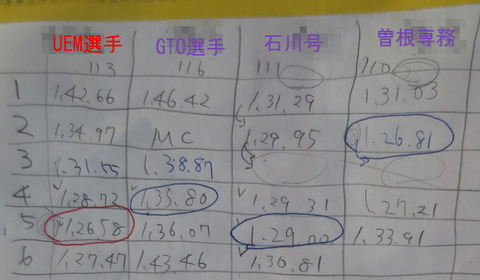 UEM選手 GTO選手 石川号 曽根専務
113 116 111 110
1 1,42.66 1,46.42 1,31.29 1,31.03
2 1,34.97 MC 1,29.95 1,26.81
3 1,31.55 1,38.87
4 1,28.72 1,35.80 1,29.31 1,27.21
5 1,26.58 1,36.07 1,29.00 1,33.91
6 1,27.47 1,43.46 1,30.81